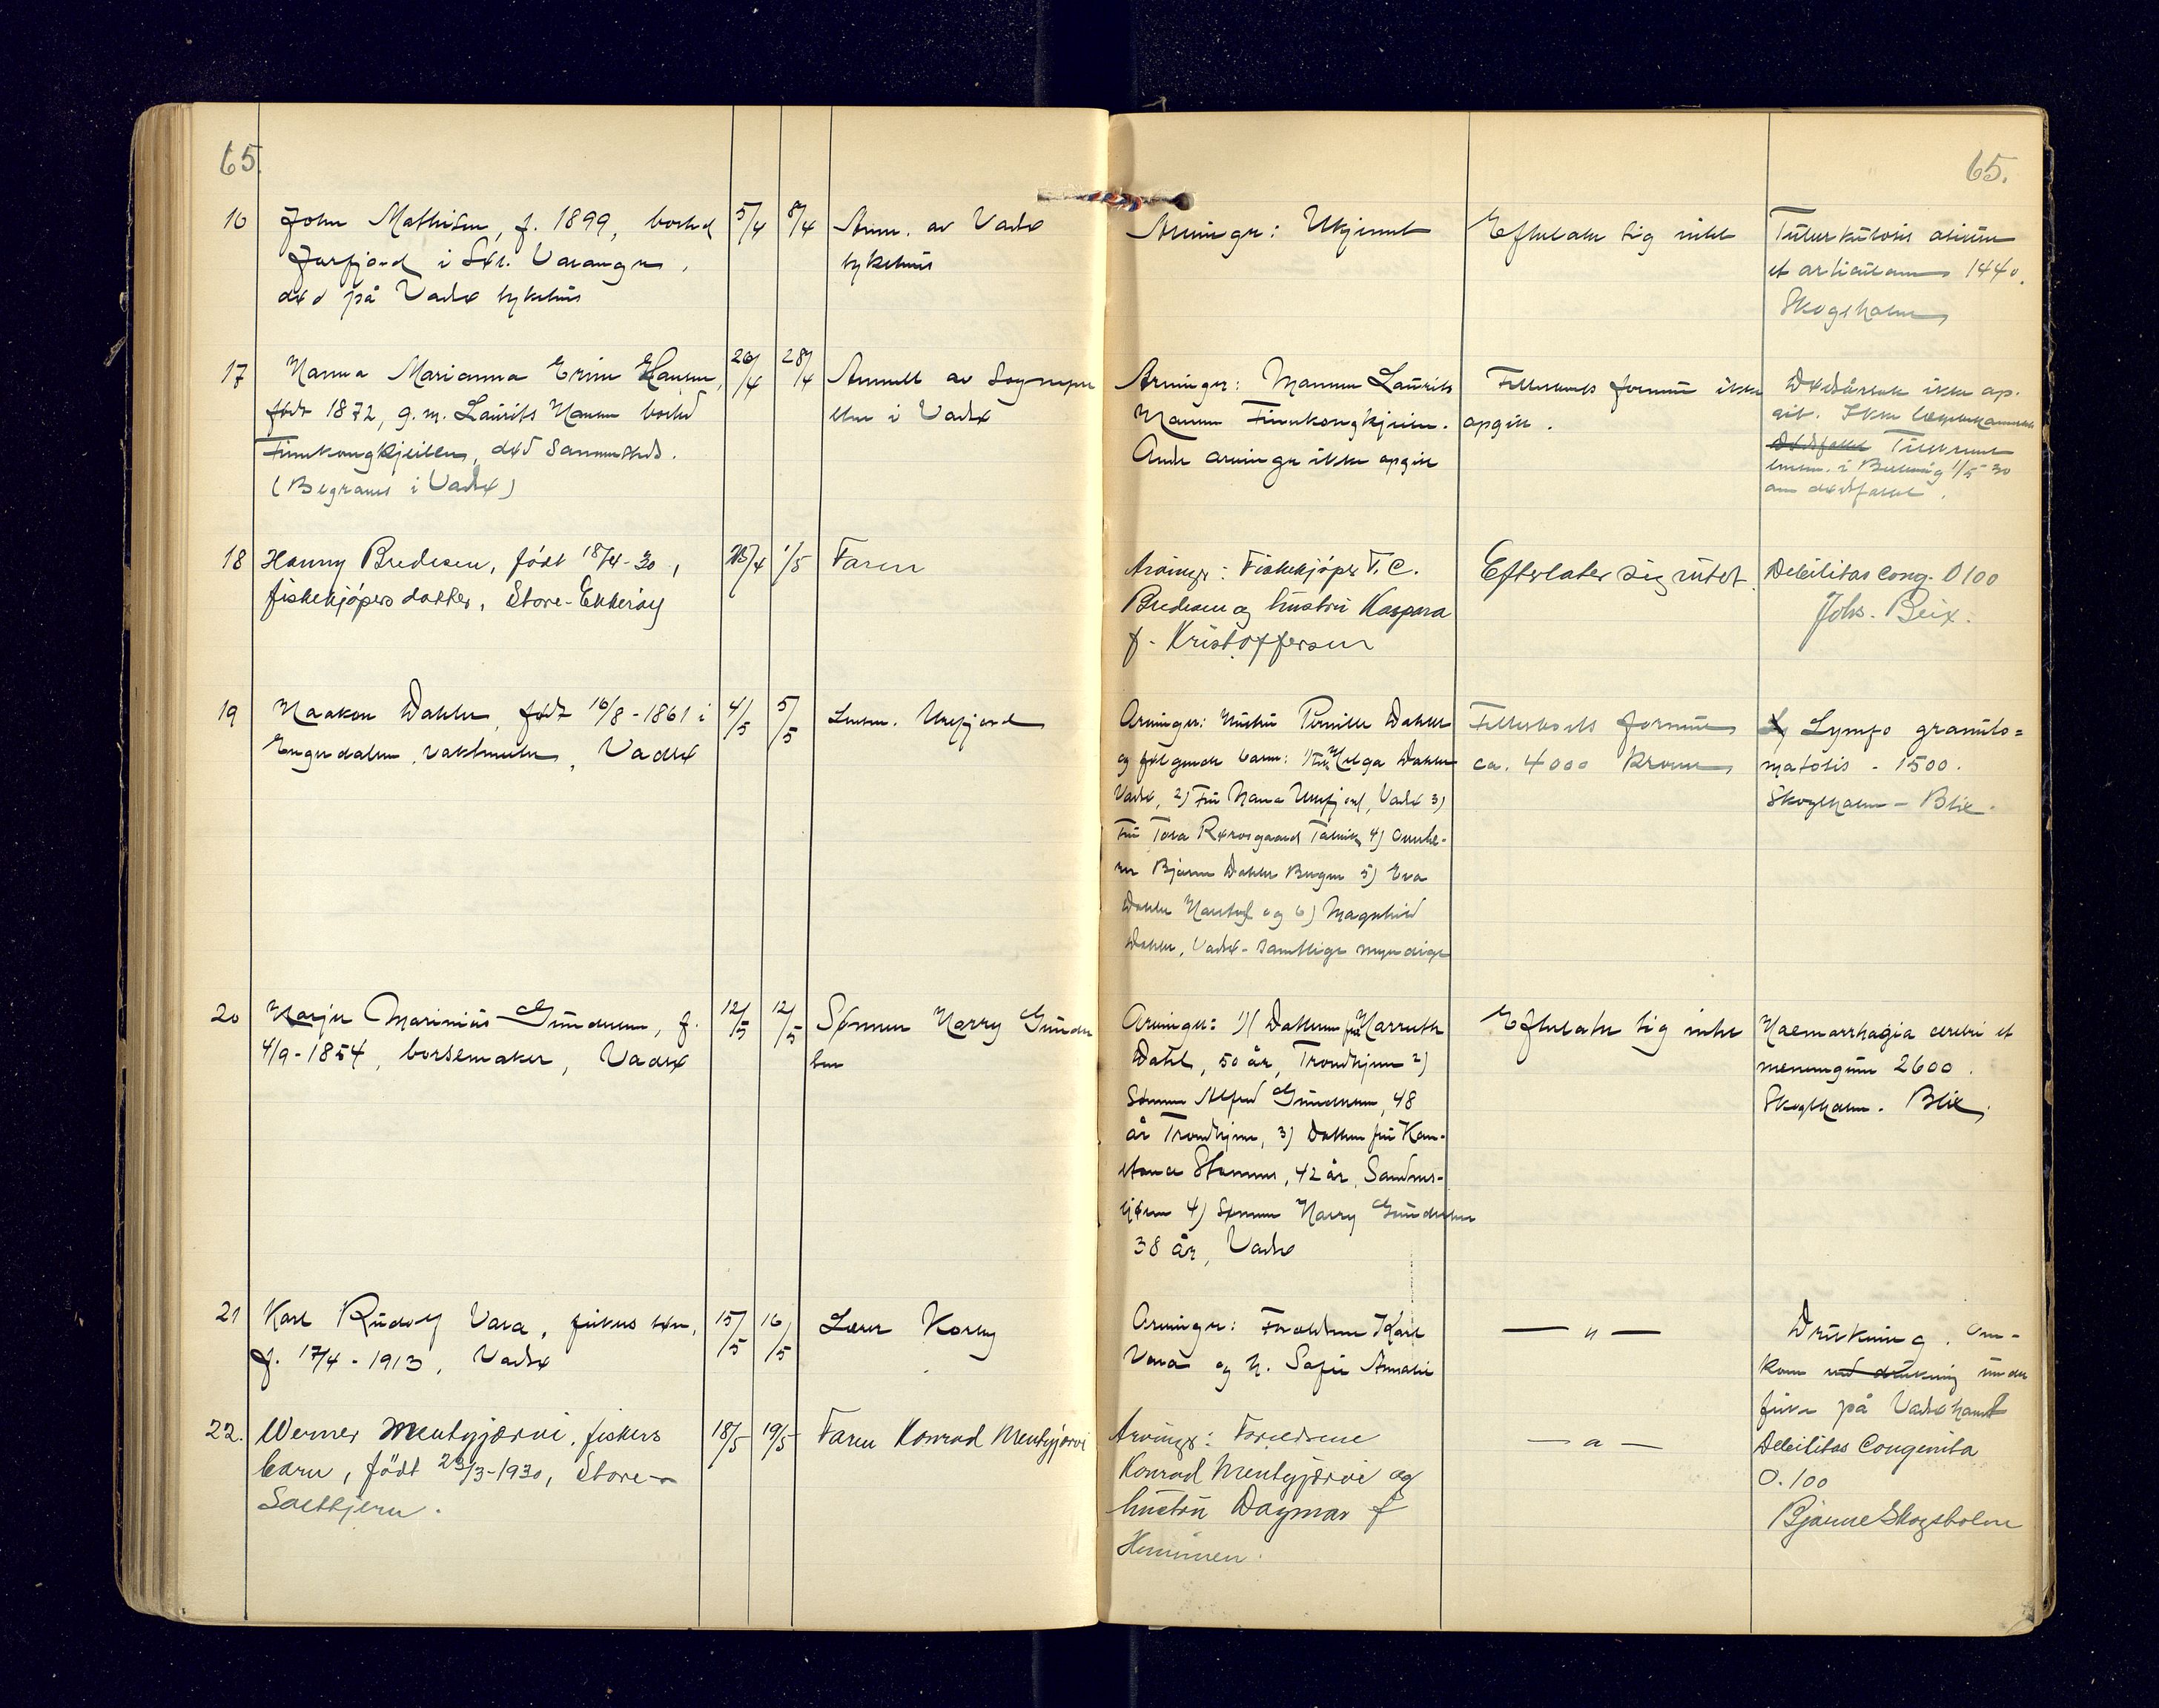 65.
65.
16 John Mathisen, f. 1899, bosted 5/4 8/4 Anm. av Vadsø Arvinger: Ukjent Efterlater sig intet Tuberkulosis
Jarfjord i Sør. Varanger, sykehus et articulam 1440.
død på Vadsø sykehus Skogsholm
17 Hanna Marianna Hansen, 26/4 28/4 Anmeldt av Sogneprе- Arvinger: Mannen Laurits Fellesboets formue ikke Dødsårsak ikke op-
født 1872, g.m. Laurits Hansen bosted sten i Vadsø Hansen Finnkongkjeilen. opgitt. gitt. Ikke
Finnkongkjeilen, død sammesteds. Andre arvinger ikke opgitt Dødsfallet
(Begraves i Vadsø) lensm. i 1/5-30
om dødsfallet.
18 Hanny Bredesen, født 18/4-30, /4 1/5 Faren Arvinger: Fiskekjøper T. C. Efterlater sig intet. Debilitas cong. 0100
fiskekjøpers datter, Store-Ekkerøy Bredesen og hustru Kaspara Johs. Beix.
f. Kristoffersen
19 Haakon Dahler, født 16/8-1861 i 4/5 5/5 Lensm. Urfjord Arvinger: Hustru Pernille Dahler Fellesboets formue Lymfo granulo=
Engerdalen, vaktmester, Vadsø og følgende barn: 1) Helga Dahler ca. 4000 kroner matosis - 1500.
Vadsø, 2) Fru Nanna Urfjord, Vadsø 3) Skogsholm - Blix.
Fru Tora Røvosgaard Talvik 4)
Bjarne Dahler Bergen 5) Eva
Dahler Harstad og 6) Magnhild
Dahler, Vadsø - samtlige myndige
20 Marinius Gundersen, f. 12/5 12/5 Sønnen Harry Gunder- Arvinger: 1) Datteren fru Efterlater sig intet Haemorrhagia cerebri et
4/9-1854, børsemaker, Vadsø sen Dahl, 50 år, Trondhjem 2) meningum 2600.
Sønnen Alfred Gundersen, 48 Skogsholm. Blix.
år Trondhjem, 3) Datteren fru Kon-
stance Stammes, 42 år, Sandnes-
sjøen 4) Sønnen Harry Gundersen
38 år, Vadsø
21 Karl Rudolf Vara, fiskers søn, 15/5 16/5 Lærer Korby Arvinger: Foreldrene Karl — " — Drukning. Om-
f. 17/4-1913, Vadsø Vara og h. Sofie Amalie kom ved drukning under
fiske på Vadsø havn
22. Werner Mentyjærvi, fiskers 18/5 19/5 Faren Konrad Mentyjærvi Arvinger: Foreldrene — " — Debilitas Congenita
barn, født 23/3-1930, Store- Konrad Mentyjærvi og 0.100
Salttjern. hustru Dagmar f. Bjarne Skogsholm
Henninen.